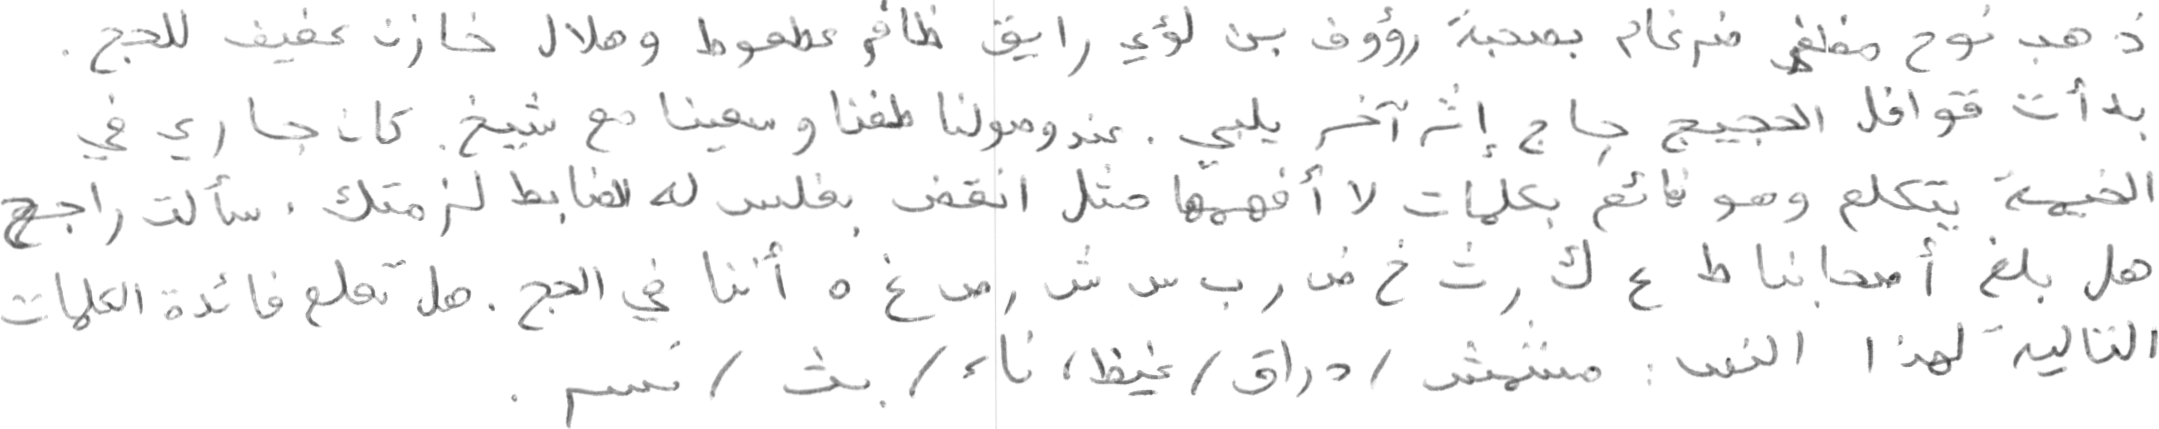 ذهب نوح مظفر ضرغام بصحبة رؤوف بن لؤي رايق ظافر عطعوط وهلال خازن عفيف للحج .
بدأت قوافل الحجيج حاج إثر آخر يلبي . عند وصولنا طفنا وسعينا مع شيخ . كان جاري في
الخيمة يتكلم وهو نائم بكلمات لا أفهمها مثل انقض بفلس له الضابط لزمتك . سألت راجح
هل بلغ أصحابنا ط ع ك ر ث خ ض ر ب س ش ر ص غ ه أننا في الحج . هل تعلم فائدة الكلمات
التالية لهذا النص : مشمش / دراق / غيظ ، ناء / بث / نسم .